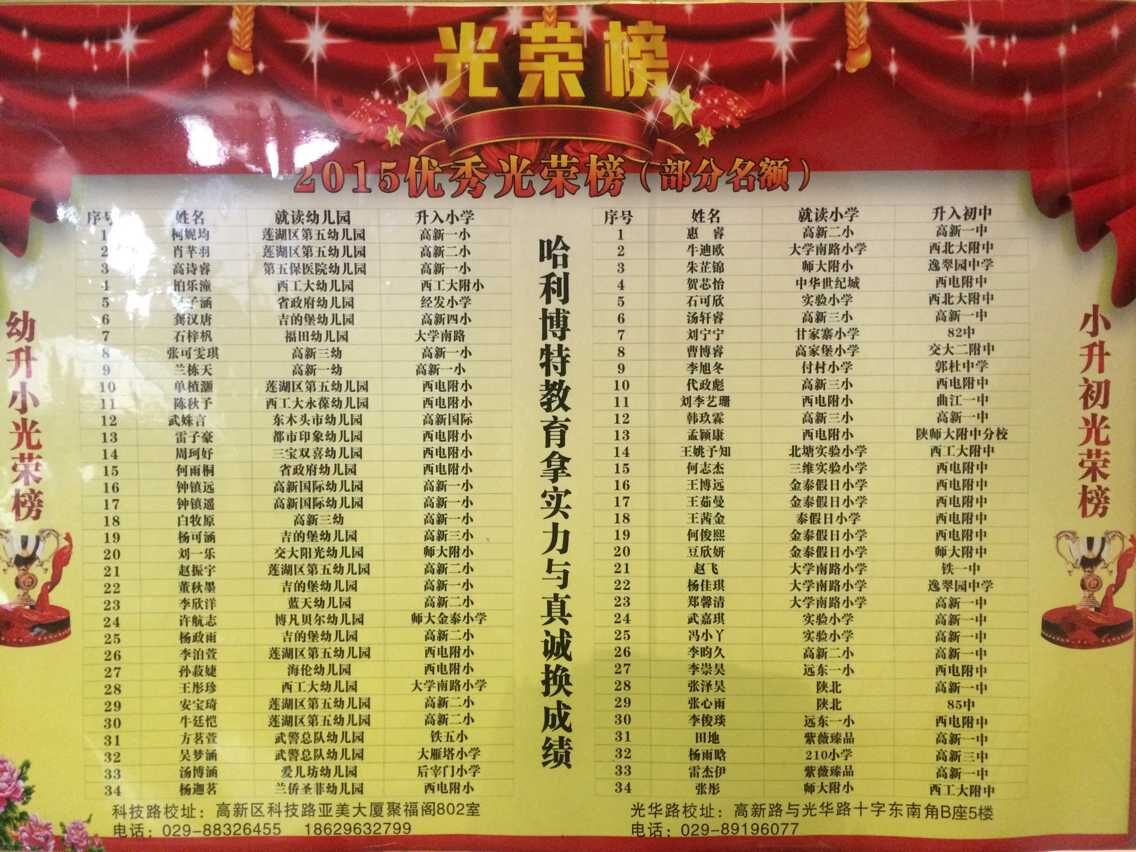 光荣榜
2015优秀光荣榜(部分名额)
幼升小光荣榜
序号 姓名 就读幼儿园 升入小学
1 柯妮均 莲湖区第五幼儿园 高新一小
2 肖芊羽 莲湖区第五幼儿园 高新二小
3 高诗睿 第五保医院幼儿园 高新一小
4 柏乐潼 西工大幼儿园 西工大附小
5 子涵 省政府幼儿园 经发小学
6 龚汉唐 吉的堡幼儿园 高新四小
7 石梓枫 福田幼儿园 大学南路
8 张可雯琪 高新三幼 高新一小
9 兰栋天 高新一幼 高新一小
10 单楂灏 莲湖区第五幼儿园 西电附小
11 陈秋予 西工大永葆幼儿园 西电附小
12 武姝言 东木头市幼儿园 高新国际
13 雷子豪 都市印象幼儿园 西电附小
14 周珂妤 三宝双喜幼儿园 西电附小
15 何雨桐 省政府幼儿园 西电附小
16 钟镇远 高新国际幼儿园 高新一小
17 钟镇遥 高新国际幼儿园 高新一小
18 白牧原 高新三幼 高新一小
19 杨可涵 吉的堡幼儿园 高新三小
20 刘一乐 交大阳光幼儿园 师大附小
21 赵振宇 莲湖区第五幼儿园 高新二小
22 董秋墨 吉的堡幼儿园 高新一小
23 李欣洋 蓝天幼儿园 高新二小
24 许航志 博凡贝尔幼儿园 师大金泰小学
25 杨政雨 吉的堡幼儿园 高新二小
26 李泊萱 莲湖区第五幼儿园 西电附小
27 孙菽婕 海伦幼儿园 西电附小
28 王彤珍 西工大幼儿园 大学南路小学
29 安宝琦 莲湖区第五幼儿园 高新二小
30 牛廷恺 莲湖区第五幼儿园 高新二小
31 方茗萱 武警总队幼儿园 铁五小
32 吴梦涵 武警总队幼儿园 大雁塔小学
33 汤博涵 爱儿坊幼儿园 后宰门小学
34 杨迦茗 兰侨圣菲幼儿园 西电附小
科技路校址：高新区科技路亚美大厦聚福阁802室
电话：029-88326455 18629632799
哈利博特教育拿实力与真诚换成绩
序号 姓名 就读小学 升入初中
1 惠睿 高新二小 高新一中
2 牛迪欧 大学南路小学 西北大附中
3 朱芷锦 师大附小 逸翠园中学
4 贺芯怡 中华世纪城 西电附中
5 石可欣 实验小学 西北大附中
6 汤轩睿 高新三小 高新一中
7 刘宁宁 甘家寨小学 82中
8 曹博睿 高家堡小学 交大二附中
9 李旭冬 付村小学 郭杜中学
10 代政彪 高新三小 西电附中
11 刘李艺珊 西电附小 曲江一中
12 韩玖霖 高新三小 高新一中
13 孟颖康 西电附小 陕师大附中分校
14 王姚予知 北塘实验小学 西工大附中
15 何志杰 三维实验小学 西电附中
16 王博远 金泰假日小学 西电附中
17 王茹曼 金泰假日小学 西电附中
18 王茜金 泰假日小学 西电附中
19 何俊熙 金泰假日小学 西电附中
20 豆欣妍 金泰假日小学 师大附中
21 赵飞 大学南路小学 铁一中
22 杨佳琪 大学南路小学 逸翠园中学
23 郑馨清 大学南路小学 高新一中
24 武嘉琪 实验小学 高新一中
25 冯小丫 实验小学 高新一中
26 李昀久 高新二小 高新一中
27 李崇昊 远东一小 西电附中
28 张泽昊 陕北 高新一中
29 张心雨 陕北 85中
30 李俊琰 远东一小 西电附中
31 田地 紫薇臻品 高新一中
32 杨雨晗 210小学 高新三中
33 雷杰伊 紫薇臻品 高新一中
34 张彤 师大附小 西工大附中
光华路校址：高新路与光华路十字东南角B座5楼
电话：029-89196077
小升初光荣榜